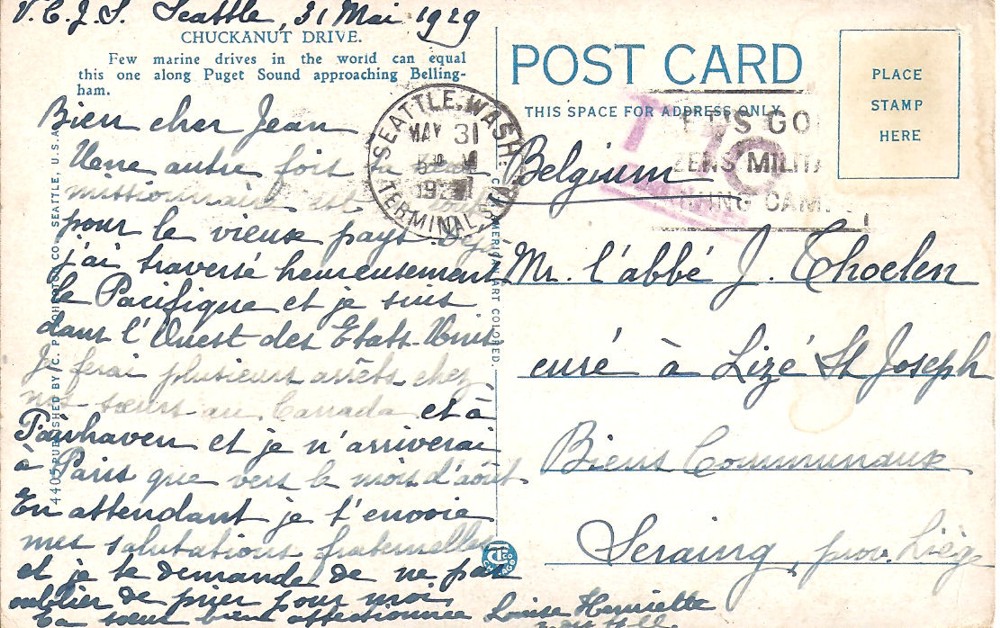 V.C.J.S. Seattle, 31 Mai 1929
CHUCKANUT DRIVE.
Few marine drives in the world can equal
this one along Puget Sound approaching Belling-
ham.
Bien cher Jean
Une autre fois la
missionnaire est
pour le vieux pays. Déjà
j'ai traversé heureusement
le Pacifique et je suis
dans l'Ouest des Etats-Unis
Je ferai plusieurs arrêts chez
nos sœurs au Canada et à
Fairhaven et je n'arriverai
à Paris que vers le mois d'août.
En attendant je t'envoie
mes salutations fraternelles
et je te demande de ne pas
oublier de prier pour moi.
Ta sœur bien affectionnée Louise Henriette
SEATTLE, WASH.
MAY 31
TERMINAL STA.
POST CARD
THIS SPACE FOR ADDRESS ONLY
PLACE
STAMP
HERE
LET'S GO
ZENS MILITA
ING CAM
Belgium
Mr. l'abbé J. Thoelen
curé à Lizé St Joseph
Biens Communaux
Seraing, prov. Liège
4405 PUBLISHED BY C. P. JOHNSTON CO., SEATTLE, U.S.A.
AMERICAN ART COLORED